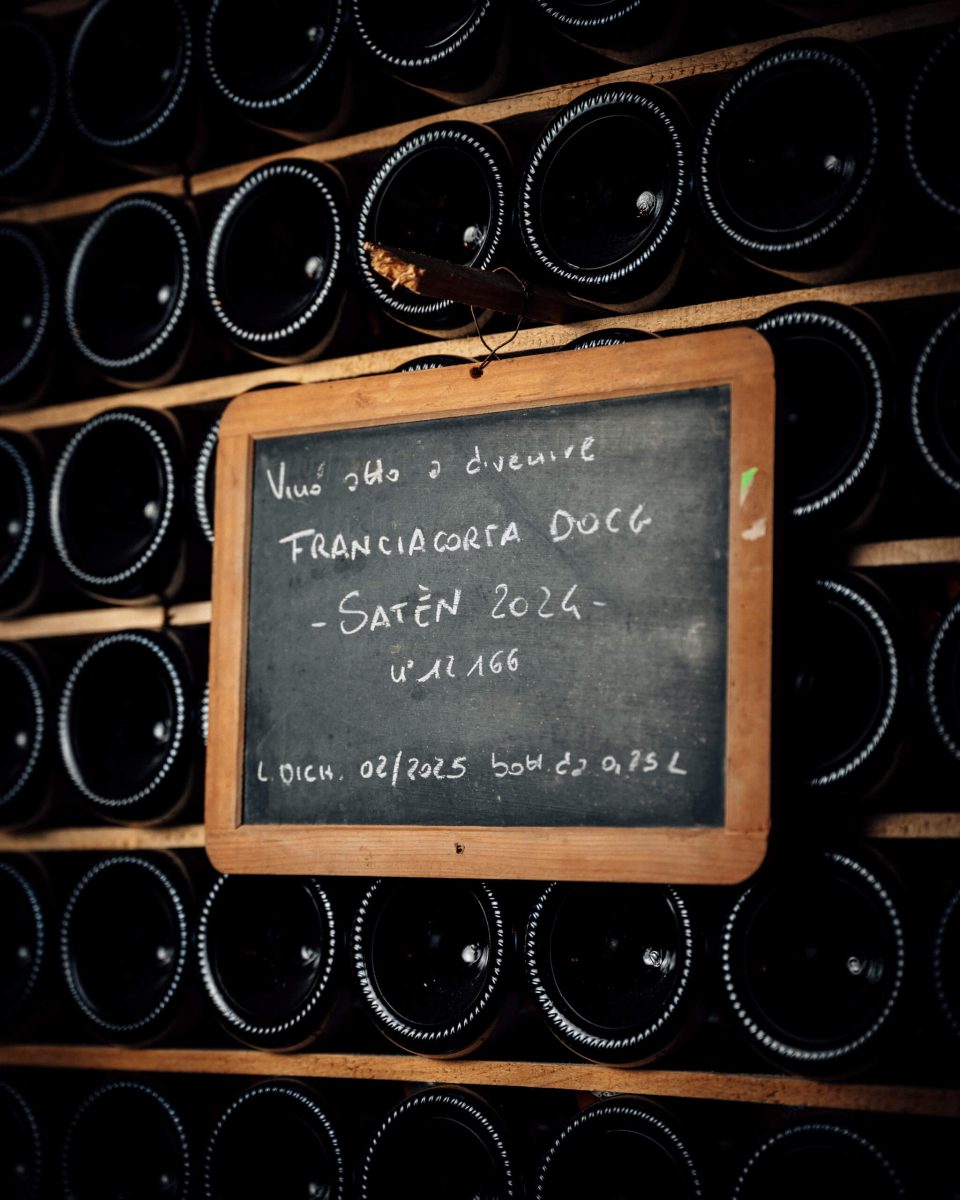 Vino atto a divenire
FRANCIACORTA DOCG
- SATÈN 2024 -
n° 12 166
L. DICH. 02/2025 bott. da 0,75 L